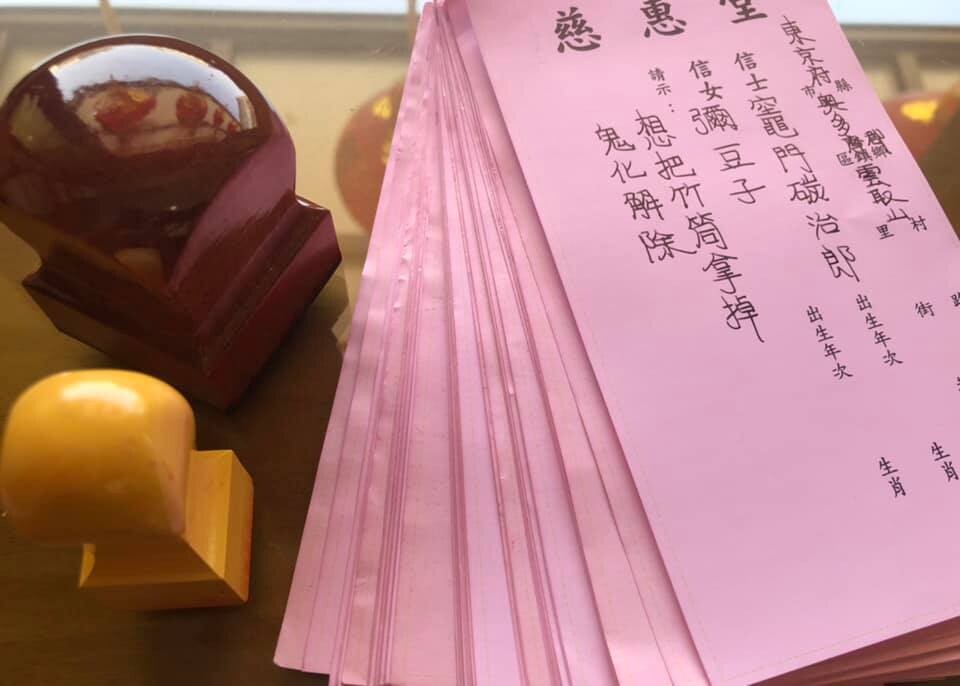 慈惠堂
東京府縣市奧多摩鄉鎮區雲取山村里 路街
信士竈門碳治郎 出生年次 生肖
信女彌豆子 出生年次 生肖
請示：想把竹筒拿掉
鬼化解除